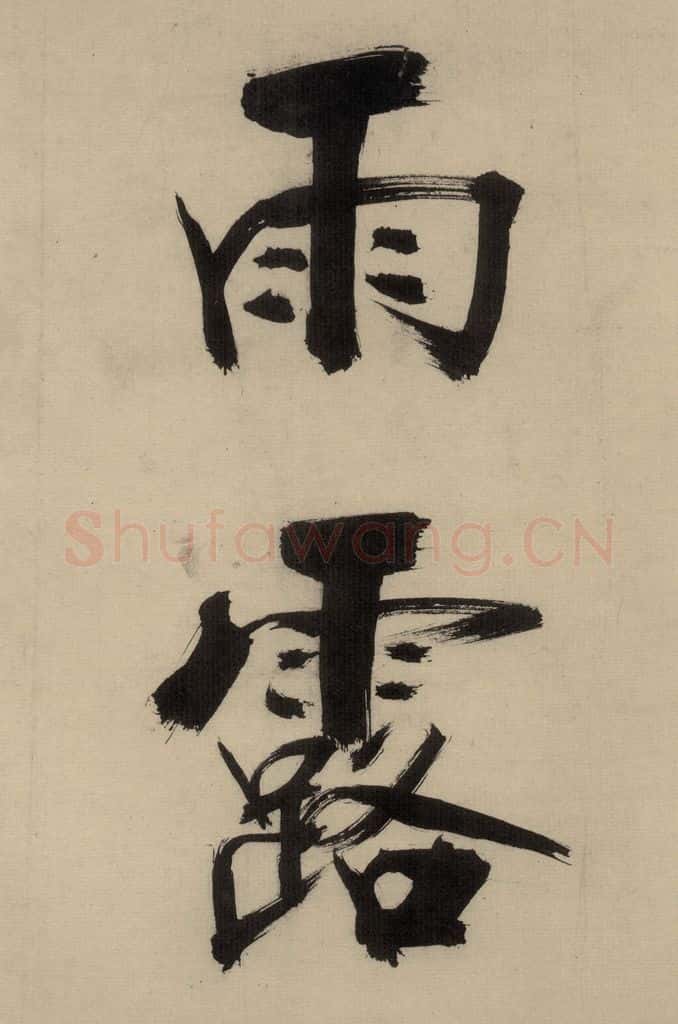 雨
露
Shufawang.CN